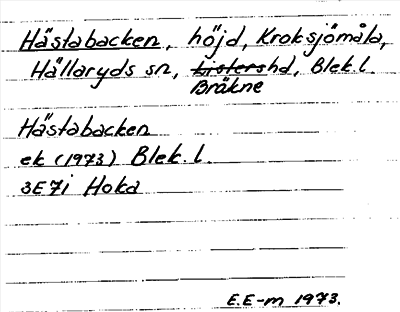 Hästabacken, höjd, Kroksjömåla,
Hällaryds sn, listershd, Blek.l.
Bräkne
Hästabacken
ek (1973) Blek.l.
3E7i Hoka
E.E-m 1973.